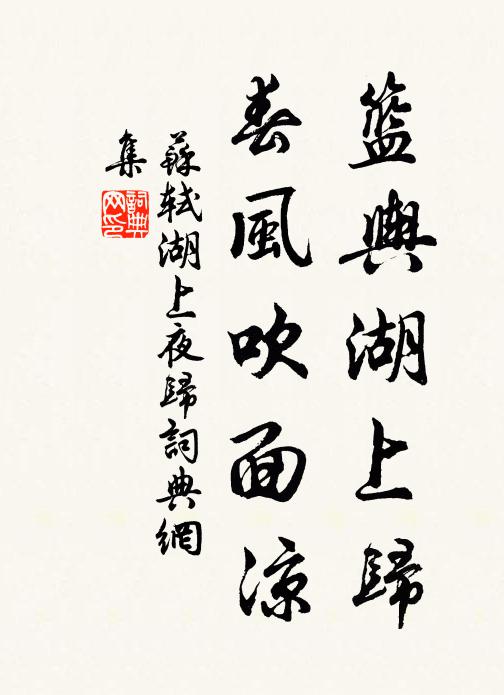 籃輿湖上歸
春風吹面涼
蘇軾湖上夜歸詞典網
集
詞典
网印